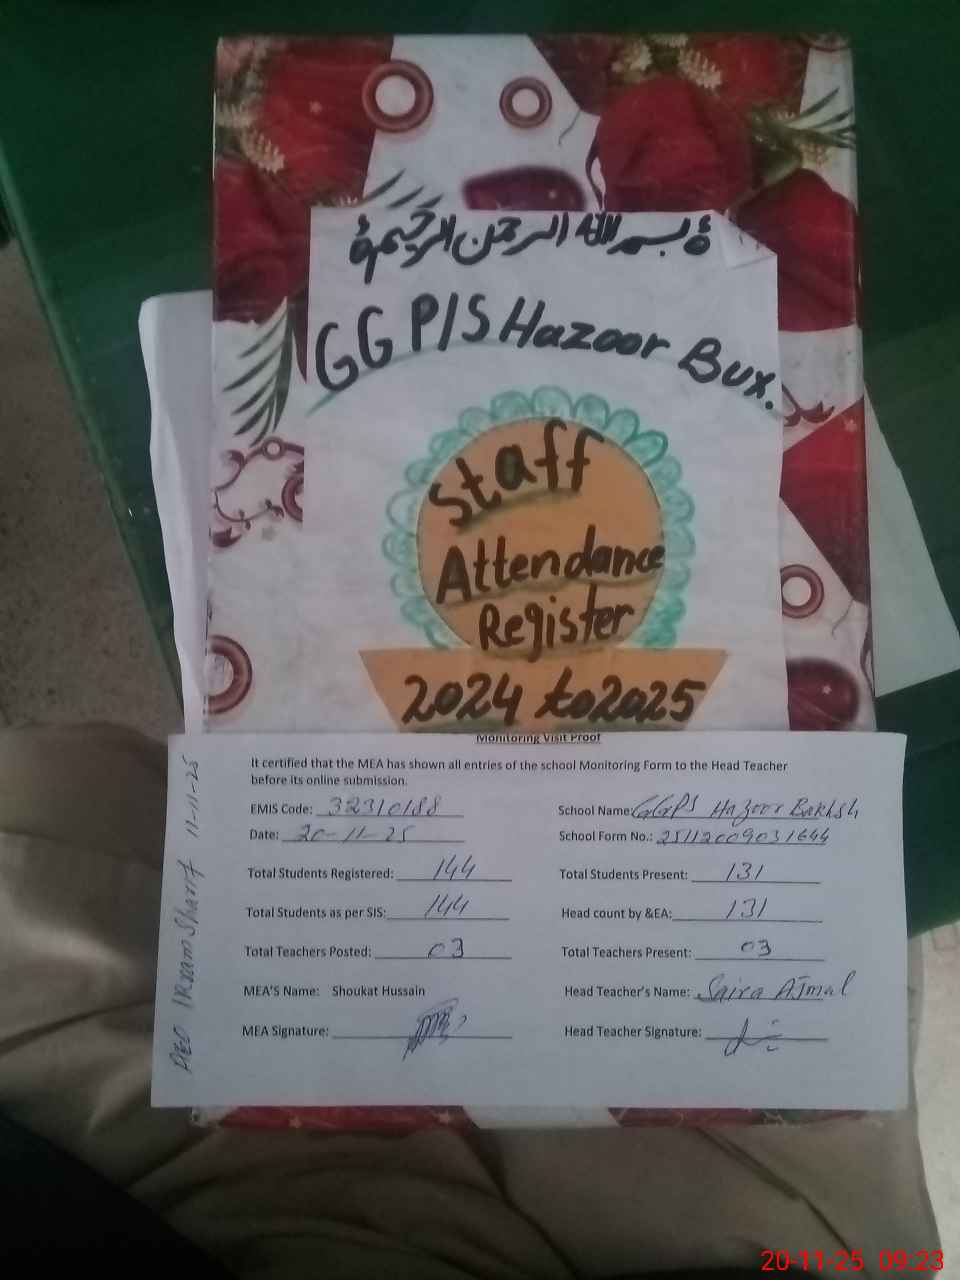 بسم اللہ الرحمن الرحیم
GGP/S Hazoor Bux.
Staff
Attendance
Register
2024 to 2025
Monitoring Visit Proof
It certified that the MEA has shown all entries of the school Monitoring Form to the Head Teacher
before its online submission.
EMIS Code: 32310188 School Name: GGPS Hazoor Bakhsh
Date: 20-11-25 School Form No.: 25112009031644
Total Students Registered: 144 Total Students Present: 131
Total Students as per SIS: 144 Head count by &EA: 131
Total Teachers Posted: 03 Total Teachers Present: 03
MEA'S Name: Shoukat Hussain Head Teacher's Name: Saira Ajmal
MEA Signature: Head Teacher Signature:
AEO IKram Sharif 11-11-25
20-11-25 09:23